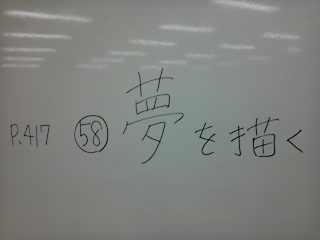 P.417 ㊽ 夢を描く